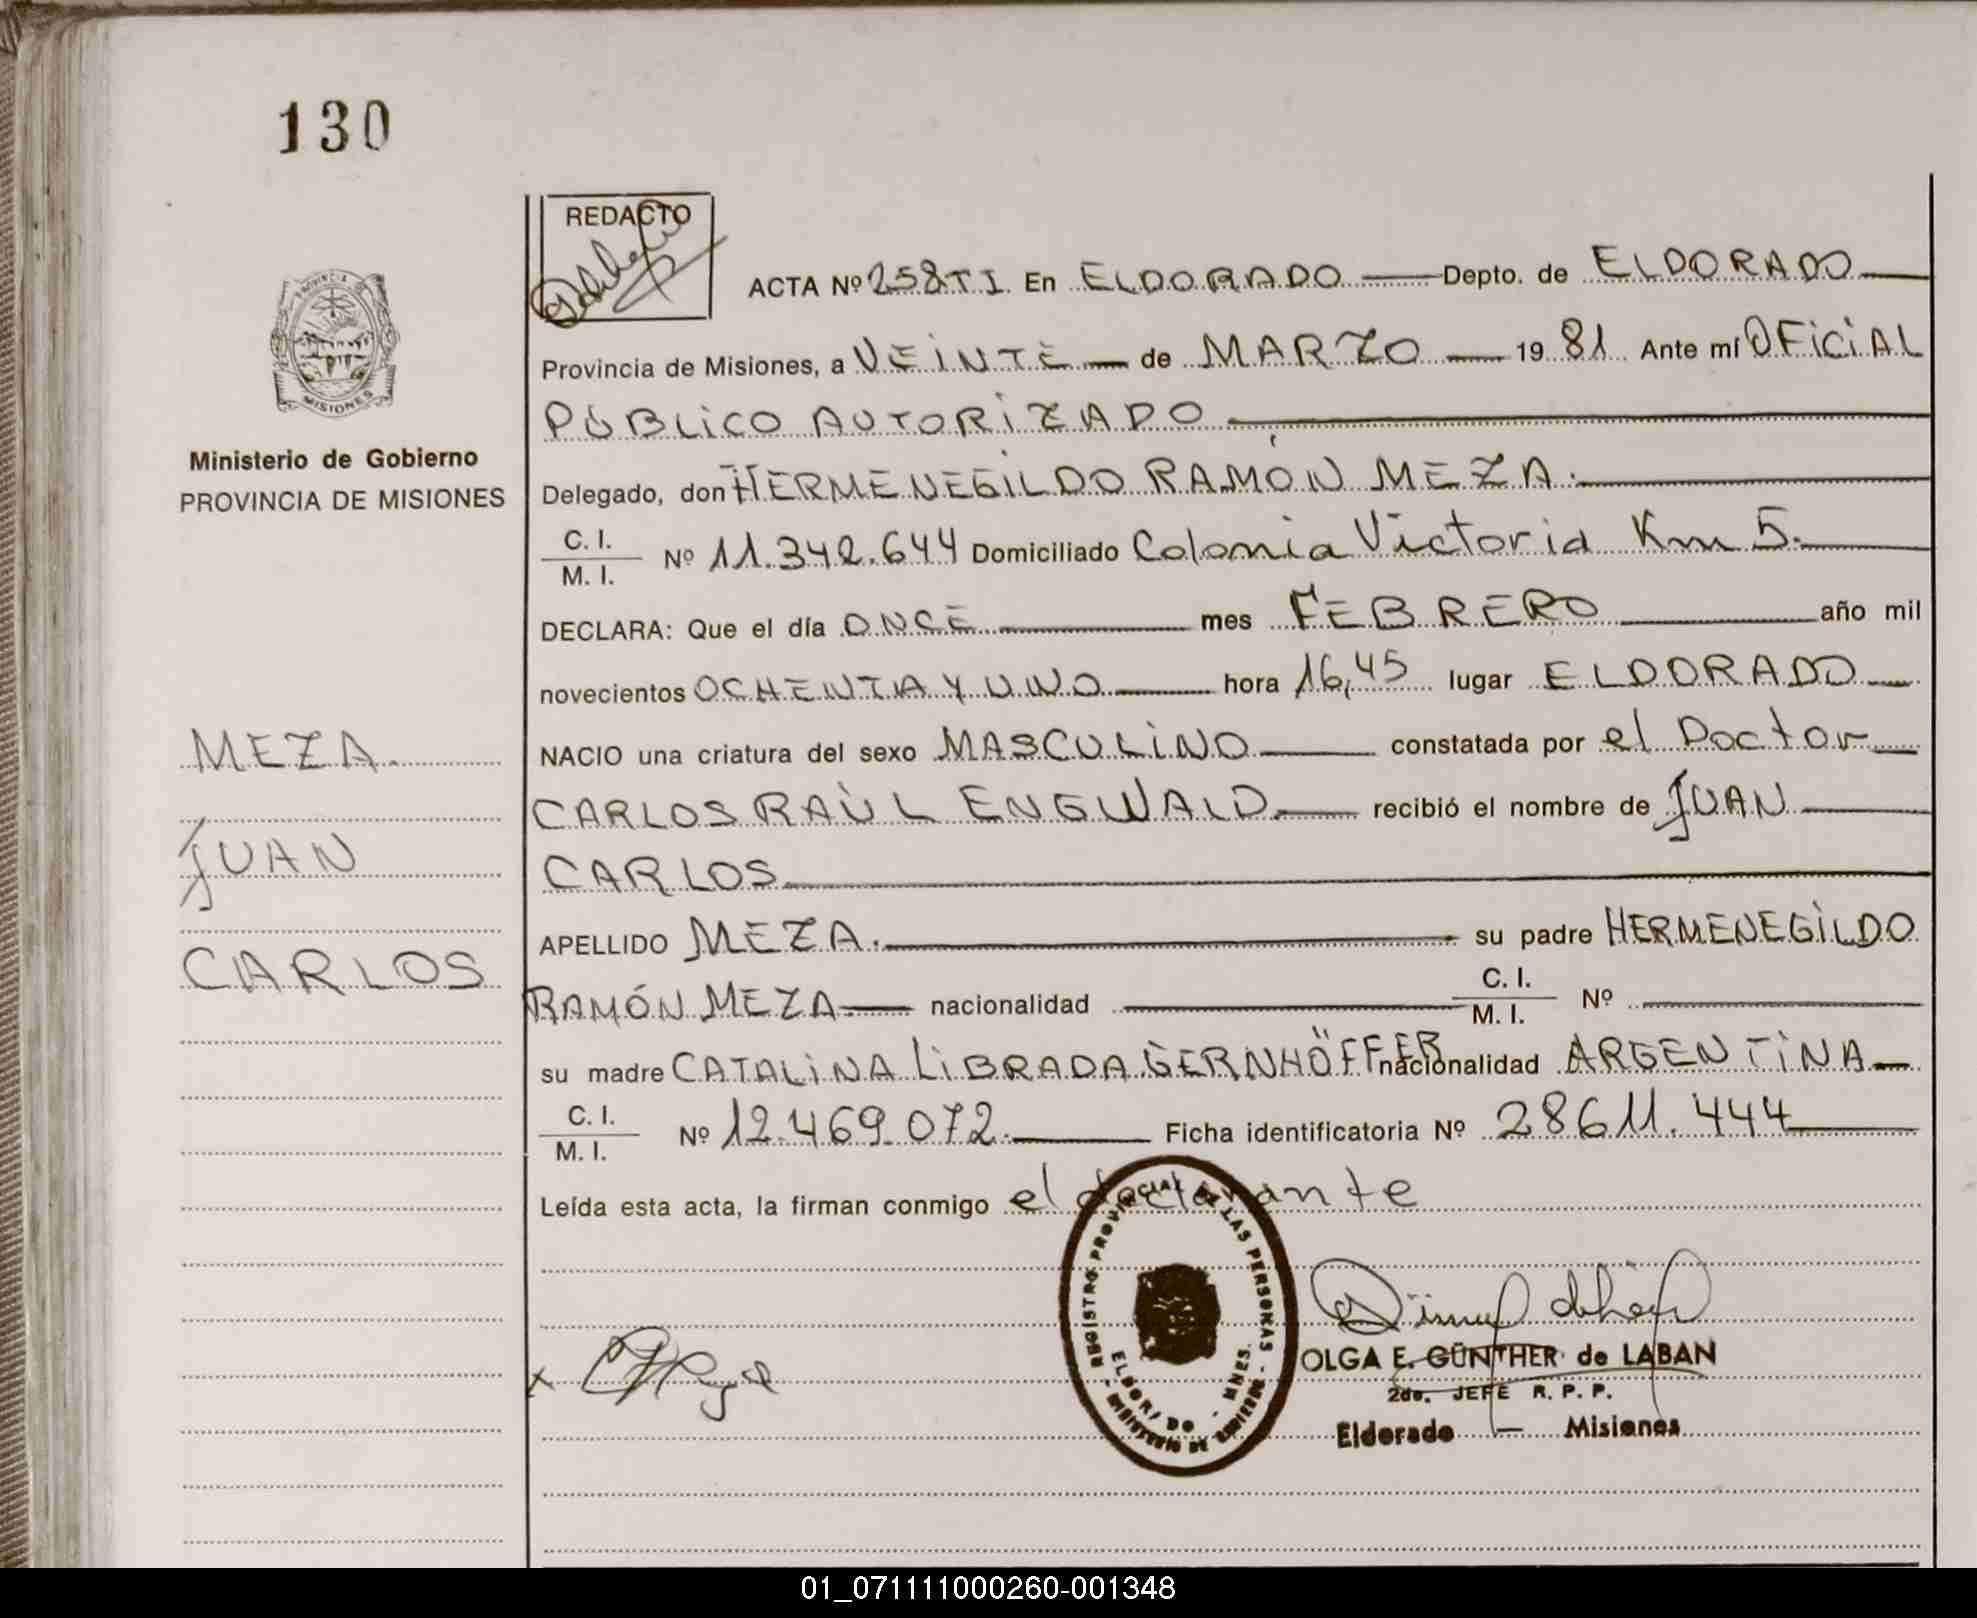 130
REDACTO
ACTA Nº 258 TI. En ELDORADO Depto. de ELDORADO
Provincia de Misiones, a VEINTE de MARZO 19 81 Ante mí OFICIAL
PÚBLICO AUTORIZADO
Delegado, don HERMENEGILDO RAMÓN MEZA.
C. I.
M. I.
Nº 11.342.644 Domiciliado Colonia Victoria Km 5.
DECLARA: Que el día ONCE mes FEBRERO año mil
novecientos OCHENTA Y UNO hora 16,45 lugar ELDORADO
NACIO una criatura del sexo MASCULINO constatada por el Doctor
CARLOS RAÚL ENGWALD recibió el nombre de JUAN
CARLOS
APELLIDO MEZA. su padre HERMENEGILDO
RAMÓN MEZA nacionalidad C. I.
M. I. Nº
su madre CATALINA LIBRADA GERNHÖFFER nacionalidad ARGENTINA
C. I.
M. I.
Nº 12.469.072. Ficha identificatoria Nº 28611.444
Leída esta acta, la firman conmigo el declarante
PROVINCIA
MISIONES
Ministerio de Gobierno
PROVINCIA DE MISIONES
MEZA.
JUAN
CARLOS
REGISTRO PROVINCIAL DE LAS PERSONAS
ELDORADO - MNES.
MINISTERIO DE GOBIERNO
OLGA E. GÜNTHER de LABAN
2do. JEFE R. P. P.
Eldorado - Misiones
01_071111000260-001348